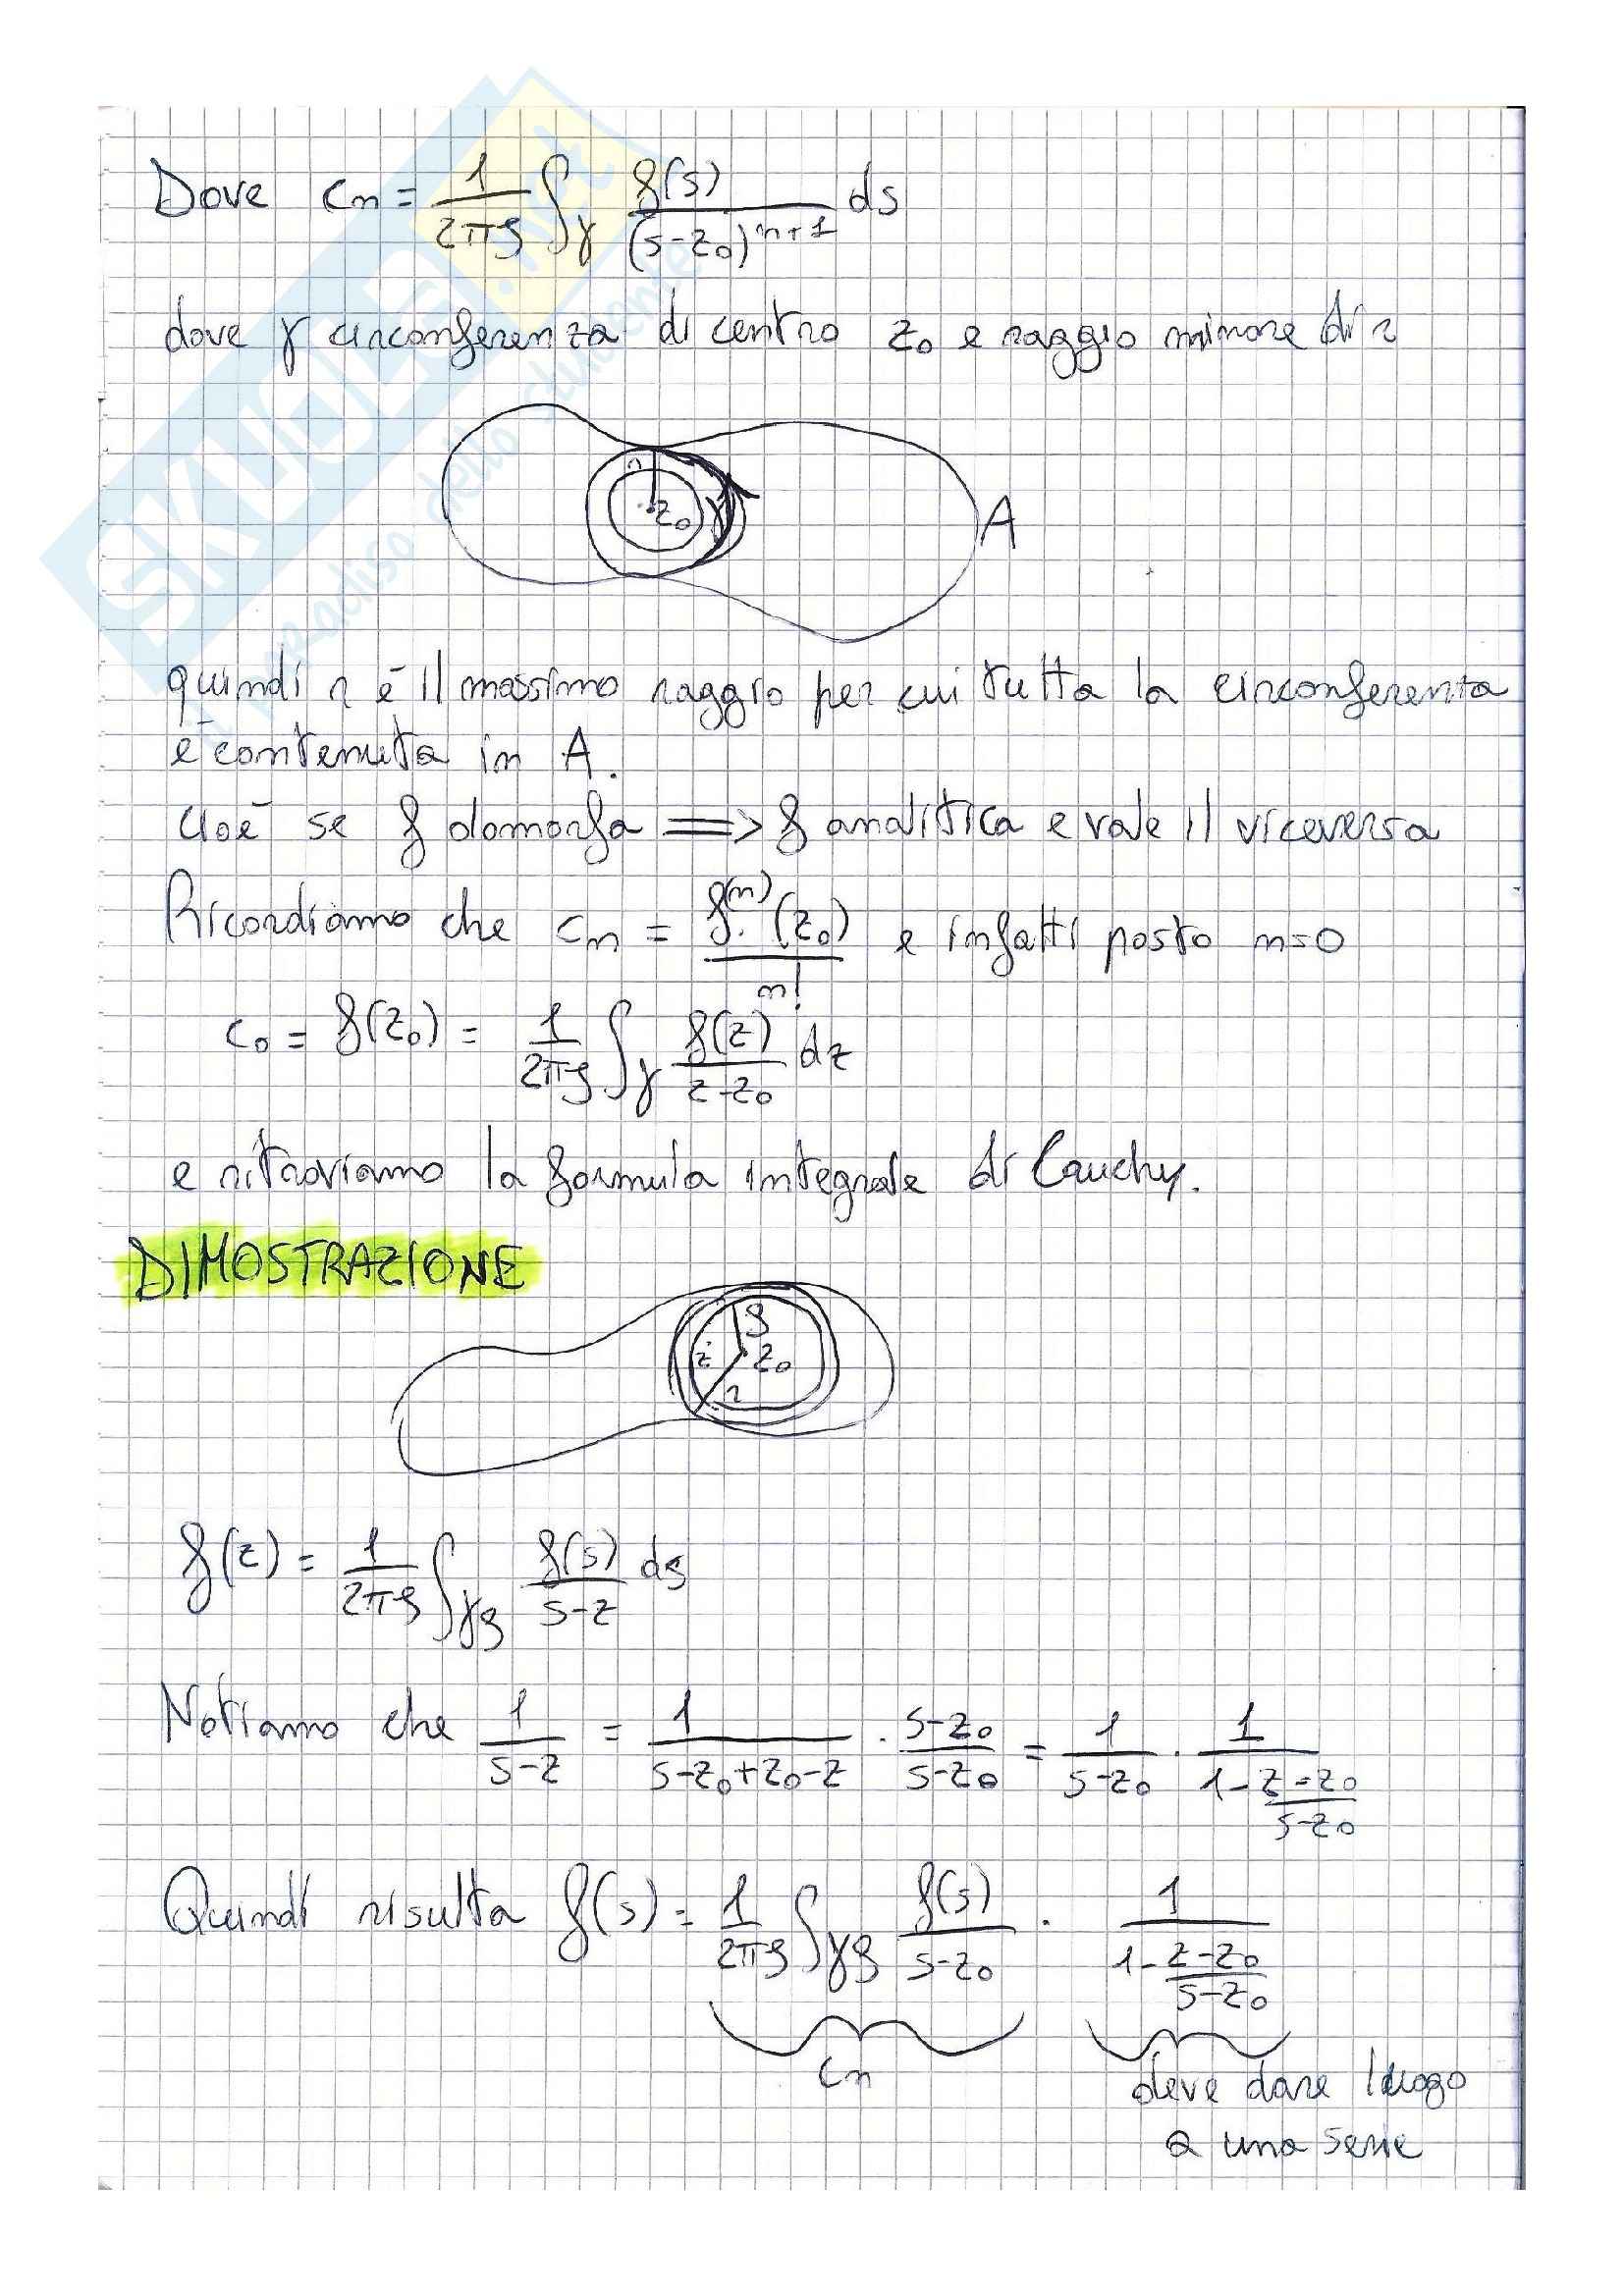 Dove cn = 1/(2πj) ∫γ f(s)/(s-z₀)^(n+1) ds
dove γ circonferenza di centro z₀ e raggio minore di r
r
z₀ γ
A
quindi r è il massimo raggio per cui tutta la circonferenza
è contenuta in A.
Cioè se f olomorfa ==> f analitica e vale il viceversa
Ricordiamo che cn = f⁽ⁿ⁾(z₀)/n! e infatti posto n=0
c₀ = f(z₀) = 1/(2πj) ∫γ f(z)/(z-z₀) dz
e ritroviamo la formula integrale di Cauchy.
DIMOSTRAZIONE
ρ
z z₀
r
f(z) = 1/(2πj) ∫γρ f(s)/(s-z) ds
Notiamo che 1/(s-z) = 1/(s-z₀+z₀-z) · (s-z₀)/(s-z₀) = 1/(s-z₀) · 1/(1-(z-z₀)/(s-z₀))
Quindi risulta f(s) = 1/(2πj) ∫γρ f(s)/(s-z₀) · 1/(1-(z-z₀)/(s-z₀))
cn
deve dare luogo
a una serie
SKUOLA.net
il paradiso dello studente